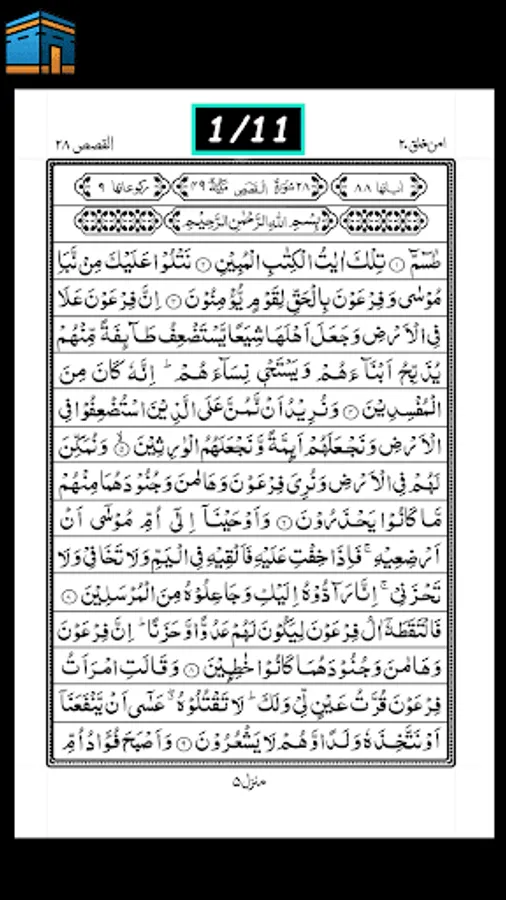 1/11
امن خلق ۲۰
القصص ۲۸
اٰیاتها ۸۸
۲۸ سُوۡرَةُ الۡقَصَصِ مَكِّيَّةٌ ۴۹
رکوعاتها ۹
بِسۡمِ اللّٰهِ الرَّحۡمٰنِ الرَّحِيۡمِ
طٰسٓمّٓ ۱ تِلۡكَ اٰيٰتُ الۡكِتٰبِ الۡمُبِيۡنِ ۲ نَتۡلُوۡا عَلَيۡكَ مِنۡ نَّبَاِ
مُوۡسٰى وَ فِرۡعَوۡنَ بِالۡحَقِّ لِقَوۡمٍ يُّؤۡمِنُوۡنَ ۳ اِنَّ فِرۡعَوۡنَ عَلَا
فِى الۡاَرۡضِ وَ جَعَلَ اَهۡلَهَا شِيَعًا يَّسۡتَضۡعِفُ طَآٮِٕفَةً مِّنۡهُمۡ
يُذَبِّحُ اَبۡنَآءَهُمۡ وَ يَسۡتَحۡىٖ نِسَآءَهُمۡ ؕ اِنَّهٗ كَانَ مِنَ
الۡمُفۡسِدِيۡنَ ۴ وَ نُرِيۡدُ اَنۡ نَّمُنَّ عَلَى الَّذِيۡنَ اسۡتُضۡعِفُوۡا فِى
الۡاَرۡضِ وَ نَجۡعَلَهُمۡ اَٮِٕمَّةً وَّ نَجۡعَلَهُمُ الۡوٰرِثِيۡنَ ۙ۵ وَ نُمَكِّنَ
لَهُمۡ فِى الۡاَرۡضِ وَ نُرِىَ فِرۡعَوۡنَ وَ هَامٰنَ وَ جُنُوۡدَهُمَا مِنۡهُمۡ
مَّا كَانُوۡا يَحۡذَرُوۡنَ ۶ وَ اَوۡحَيۡنَاۤ اِلٰٓى اُمِّ مُوۡسٰٓى اَنۡ
اَرۡضِعِيۡهِ ۚ فَاِذَا خِفۡتِ عَلَيۡهِ فَاَلۡقِيۡهِ فِى الۡيَمِّ وَ لَا تَخَافِىۡ وَ لَا
تَحۡزَنِىۡ ۚ اِنَّا رَآدُّوۡهُ اِلَيۡكِ وَ جَاعِلُوۡهُ مِنَ الۡمُرۡسَلِيۡنَ ۷
فَالۡتَقَطَهٗۤ اٰلُ فِرۡعَوۡنَ لِيَكُوۡنَ لَهُمۡ عَدُوًّا وَّ حَزَنًا ؕ اِنَّ فِرۡعَوۡنَ
وَ هَامٰنَ وَ جُنُوۡدَهُمَا كَانُوۡا خٰطِـِٕيۡنَ ۸ وَ قَالَتِ امۡرَاَتُ
فِرۡعَوۡنَ قُرَّتُ عَيۡنٍ لِّىۡ وَ لَكَ ؕ لَا تَقۡتُلُوۡهُ ۖ عَسٰٓى اَنۡ يَّنۡفَعَنَاۤ
اَوۡ نَتَّخِذَهٗ وَلَدًا وَّ هُمۡ لَا يَشۡعُرُوۡنَ ۹ وَ اَصۡبَحَ فُؤَادُ اُمِّ
منزل ۵